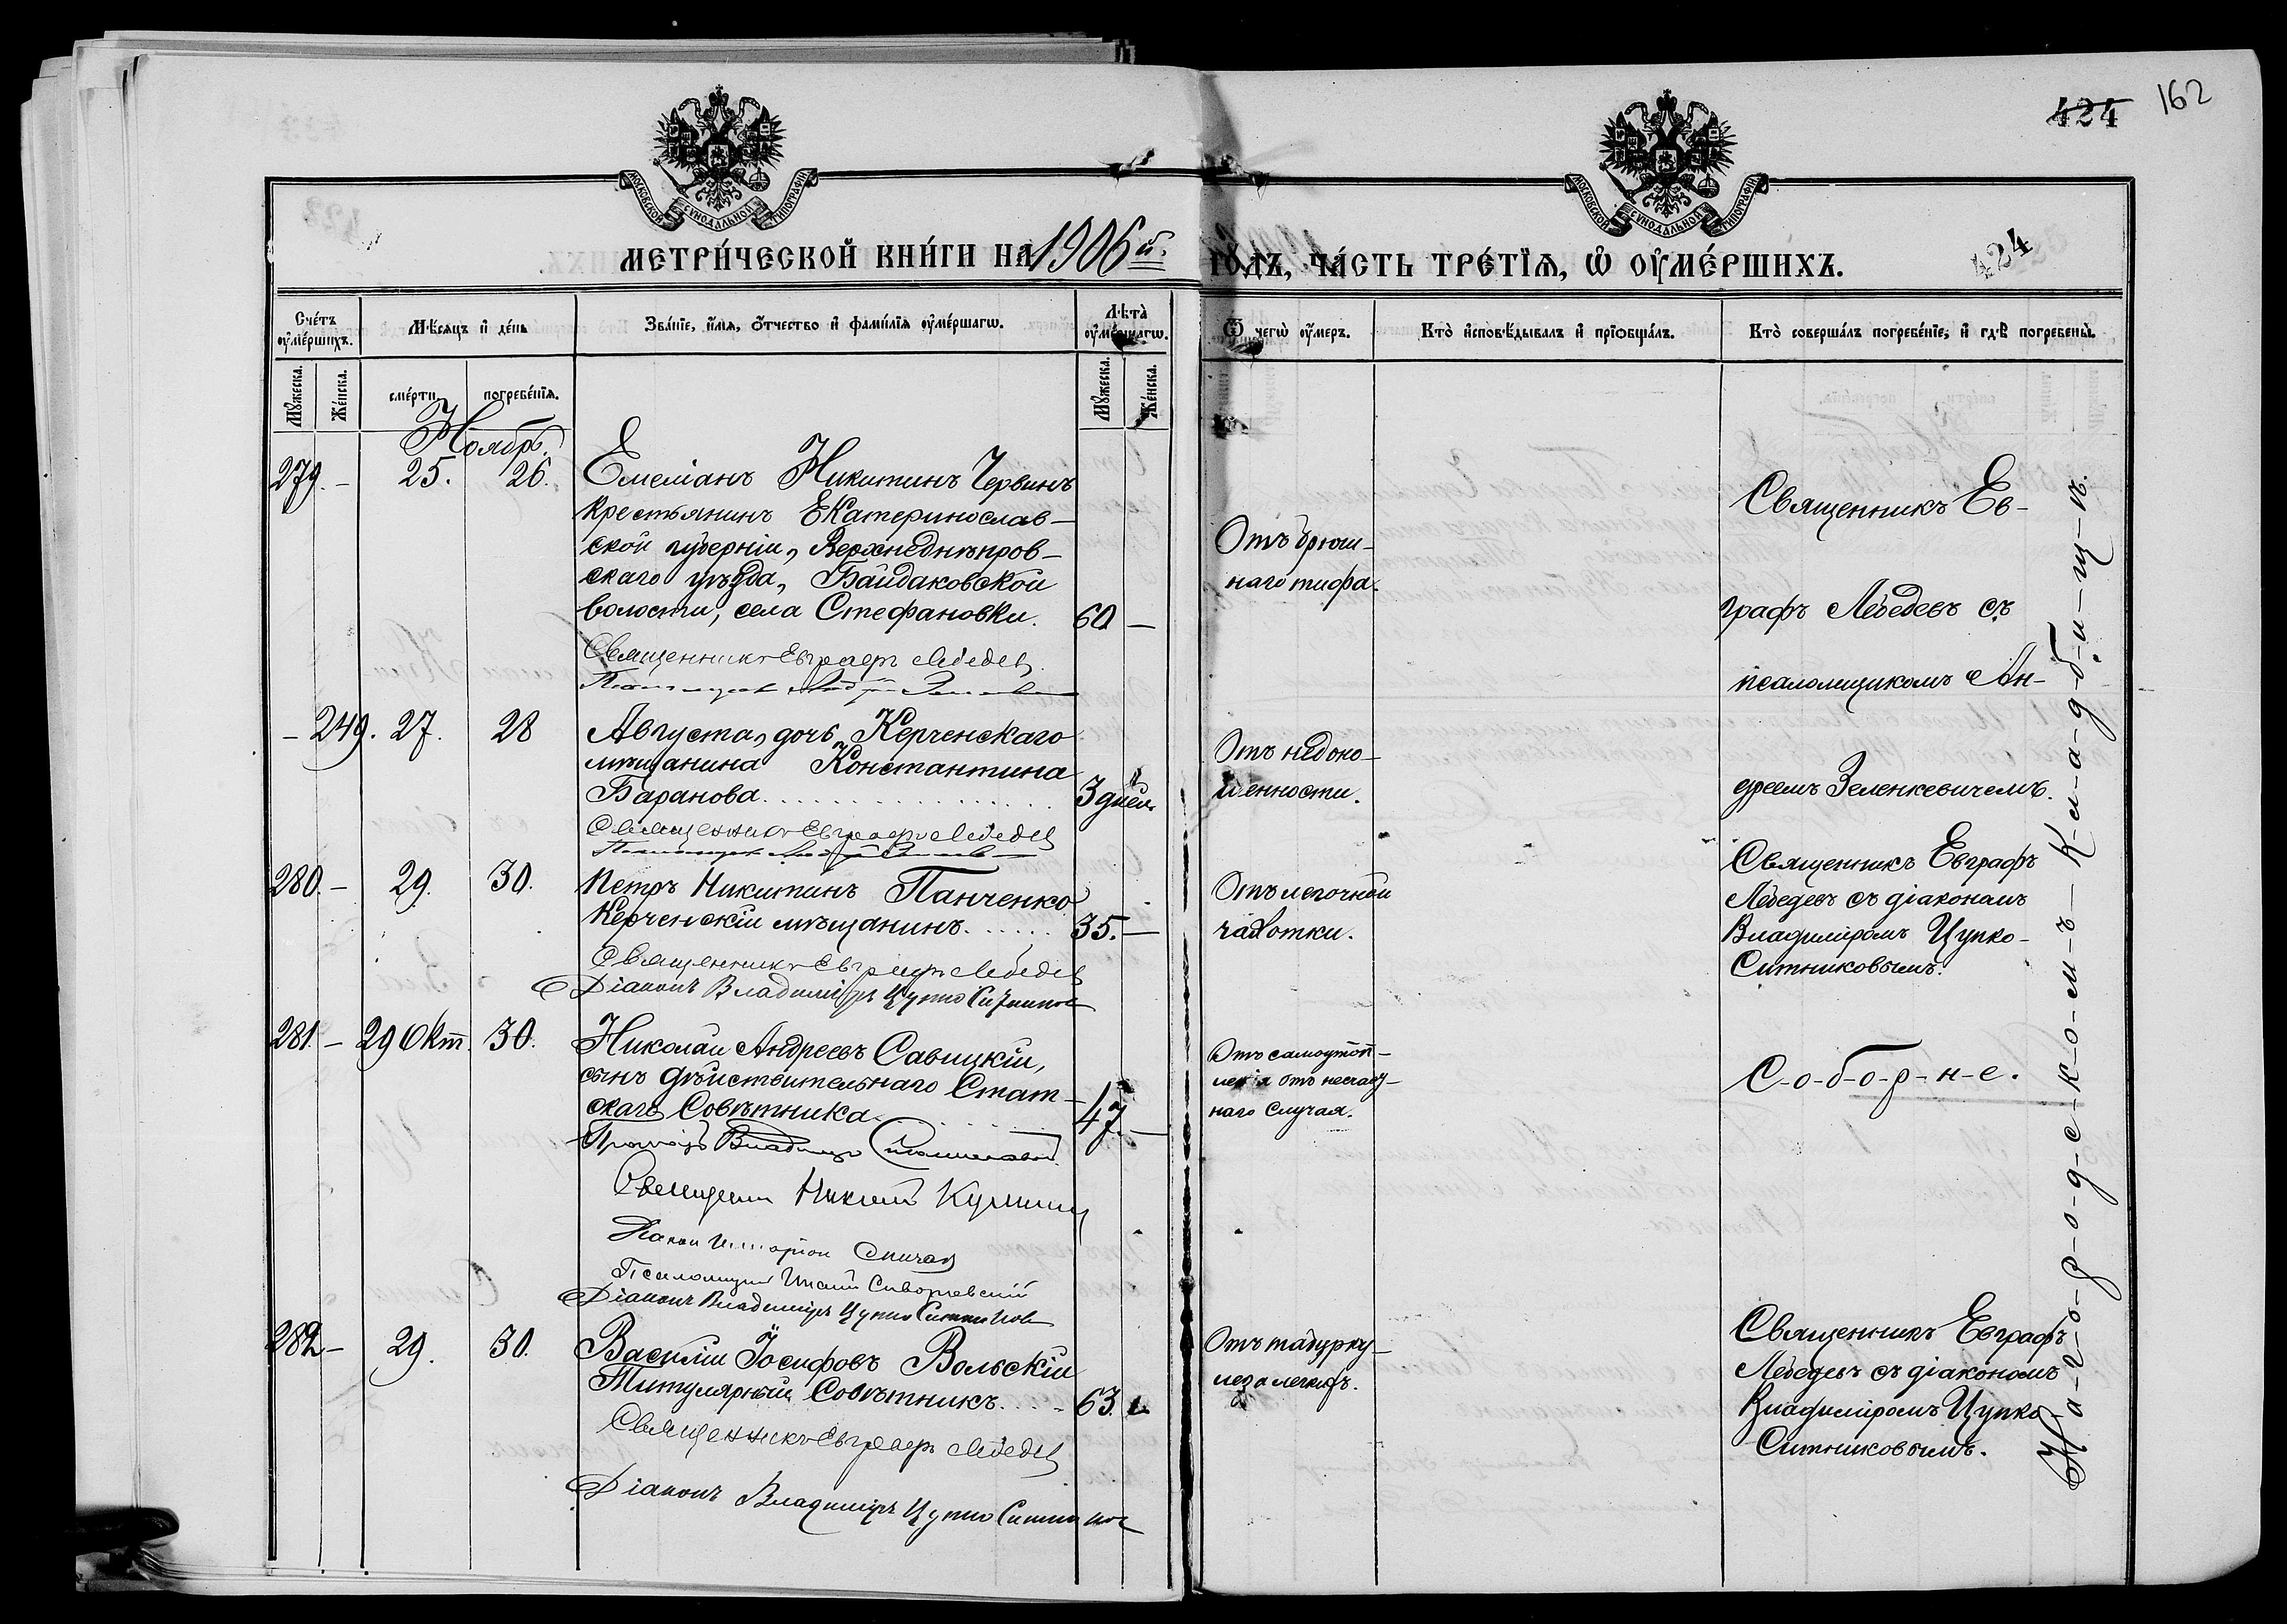 424 162
МОСКОВСКОЙ СѴНОДАЛЬНОЙ ТИПОГРАФІИ
МОСКОВСКОЙ СѴНОДАЛЬНОЙ ТИПОГРАФІИ
МЕТРИ́ЧЕСКОЙ КНИ́ГИ НА 1906 й. ГО́ДЪ, ЧА́СТЬ ТРЕ́ТІѦ, Ѡ ОУ҆МЕ́РШИХЪ.
424
Сче́тъ оу҆ме́ршихъ.
Мѣ́сяцъ и҆ де́нь
Зва́нїе, и҆́мѧ, ѻ҆́тчество и҆ фами́лїѧ оу҆ме́ршагѡ.
Лѣта̀ оу҆ме́ршагѡ.
Ѿ чегѡ̀ оу҆́меръ.
Кто̀ и҆сповѣ́дывалъ и҆ прїѡбща́лъ.
Кто̀ соверша́лъ погребе́нїе, и҆ гдѣ̀ погребены̀.
Мꙋ́жеска.
Же́нска.
сме́рти.
погребе́нїѧ.
Мꙋ́жеска.
Же́нска.
Ноябрь.
279. – 25. 26. Емеліанъ Никитинъ Червинъ
крестьянинъ Екатеринослав–
ской губерніи, Верхнеднѣпров–
скаго уѣзда, Байдаковской
волости, села Стефановки. 60 –
Священникъ Евграфъ Лебедевъ
Отъ брюш–
наго тифа.
Священникъ Ев–
графъ Лебедевъ съ
псаломщикомъ Ан–
дреемъ Зеленкевичемъ.
– 249. 27. 28 Августа, дочь Керченскаго
мѣщанина Константина
Баранова. 3 дней
Священникъ Евграфъ Лебедевъ
Отъ недоно–
шенности.
280. – 29. 30. Петръ Никитинъ Панченко
Керченскій мѣщанинъ. 35. –
Священникъ Евграфъ Лебедевъ
Діаконъ Владиміръ Цупко Ситников
Отъ легочной
чахотки.
Священникъ Евграфъ
Лебедевъ съ діакономъ
Владиміромъ Цупко–
Ситниковымъ.
281. – 29 Окт. 30. Николай Андреевъ Савицкій,
сынъ дѣйствительнаго Стат–
скаго Совѣтника. 47. –
Діаконъ Владиміръ Цупко Ситников
Отъ самоутоп–
ленія отъ несчаст–
наго случая.
С-о-б-о-р-н-е.
282 – 29. 30. Василій Іосифовъ Вольскій
Титулярный Совѣтникъ. 63.
Священникъ Евграфъ Лебедевъ
Діаконъ Владиміръ Цупко Ситников
Отъ туберку–
леза легкихъ.
Священникъ Евграфъ
Лебедевъ съ діакономъ
Владиміромъ Цупко
Ситниковымъ.
На-г-о-р-о-д-с-к-о-м-ъ- К-л-а-д-б-и-щ-ѣ.